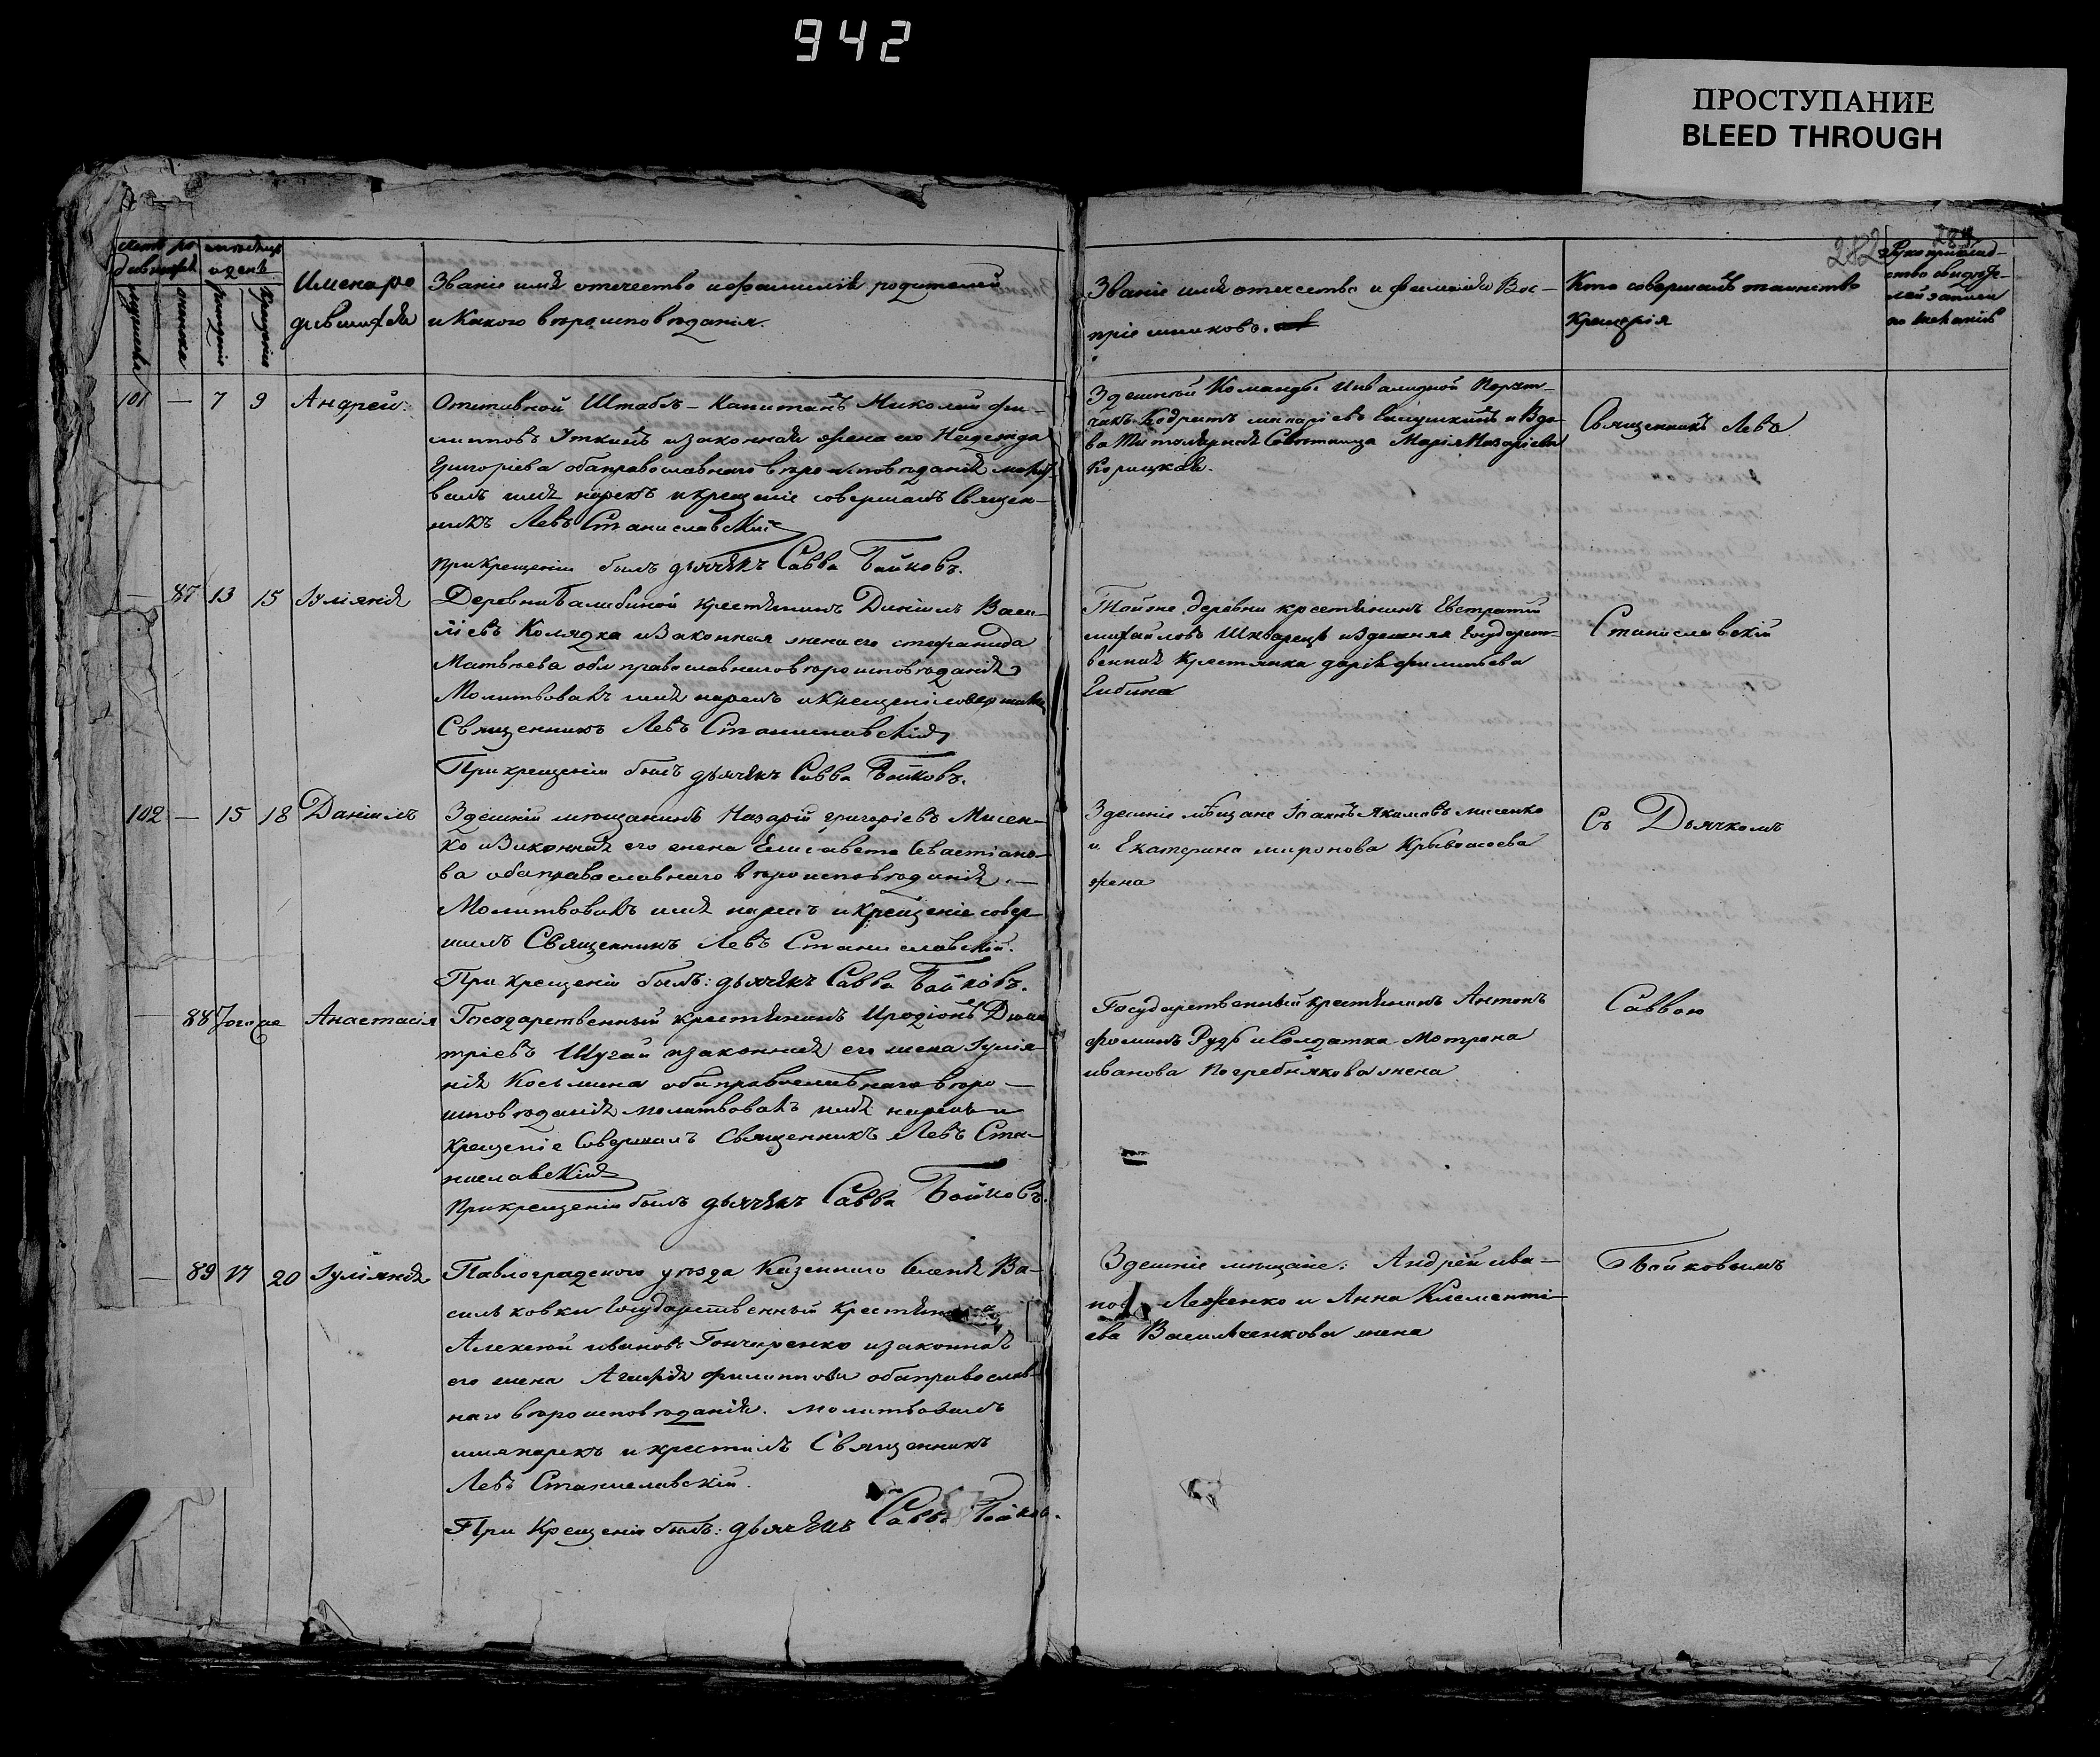 942
ПРОСТУПАНИЕ
BLEED THROUGH
282
Имена ро
дившихся
Званіе имя отечество и фамилія родителей
и Какого вѣроисповѣданія.
Званіе имя отечество и фамилія Вос-
пріемниковъ.
Кто совершалъ таинство
Крещенія
101 — 7 9 Андрей
Отставной Штабсъ-Капитанъ Николай Фи-
липповъ Уткинъ и законная жена его Надежда
Григоріева оба православнаго вѣроисповѣданія молит-
вилъ имя нарекъ и крещеніе совершалъ Священ-
никъ Левъ Станиславскій
При крещеніи былъ дьячекъ Савва Байковъ.
Здешной Команды Инвалидной Порут-
чикъ и Вдо-
ва Титулярная Совѣтница Марія Назаріева
Корицкая.
Священникъ Левъ
— 87 13 15 Іуліянія
Деревни крестянинъ Даніилъ Васи-
ліевъ Колядка и Законная жена его Стефанида
Матвѣева оба православнаго вѣроисповѣданія
Молитвовалъ имя нарекъ и крещеніе совершилъ
Священникъ Левъ Станиславскій
При крещеніи былъ дьячекъ Савва Байковъ.
Тойже деревни крестянинъ Евстратій
Михайловъ и здешняя Государст-
венная Крестянка Дарія
Станиславскій
102 — 15 18 Даніилъ
Здешній мѣщанинъ Назарій Григоріевъ Мисен-
ко и Законная его жена Елисавета Севастіано-
ва оба православнаго вѣроисповѣданія. —
Молитвовалъ имя нарекъ и крещеніе совер-
шилъ Священникъ Левъ Станиславскій.
При крещеніи былъ: дьячекъ Савва Байковъ.
Здешніе мѣщане Іоаннъ Якимовъ Мисенко
и Екатерина Миронова
жена
Съ Дьячкомъ
— 88 Анастасія
Государственный крестянинъ Иродіонъ Дими
тріевъ Шугай и законная его жена Іуліа-
нія Косьмина оба православнаго вѣро-
исповѣданія молитвовалъ имя нарекъ и
крещеніе Совершалъ Священникъ Левъ Ста-
ниславскій
При крещеніи былъ дьячекъ Савва Байковъ.
Государственный крестянинъ Антонъ
Фоминъ Рудь и Солдатка Мотрона
Иванова Погребнякова жена
Саввою
— 89 17 20 Іуліянія
Павлоградского уѣзда Казенного Селенія Ва-
сильковки Государственный Крестянинъ
Алексѣй Ивановъ Гончаренко и законная
его жена Агафія Филиппова оба православ-
наго вѣроисповѣданія. Молитвовалъ
имя нарекъ и крестилъ Священникъ
Левъ Станиславскій.
При Крещеніи былъ: дьячекъ Савва Байковъ.
Здешніе мѣщане: Андрей Ива-
новъ Леженко и Анна Клементі-
ева Васильченкова жена
Байковымъ